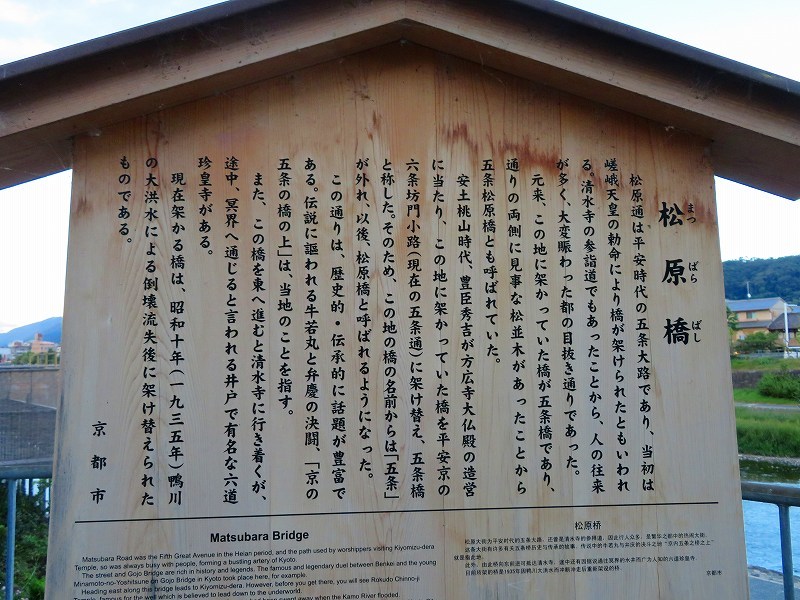 松原橋
まつ ばら ばし
松原通は平安時代の五条大路であり、当初は
嵯峨天皇の勅命により橋が架けられたともいわれ
る。清水寺の参詣道でもあったことから、人の往来
が多く、大変賑わった都の目抜き通りであった。
元来、この地に架かっていた橋が五条橋であり、
通りの両側に見事な松並木があったことから
五条松原橋とも呼ばれていた。
安土桃山時代、豊臣秀吉が方広寺大仏殿の造営
に当たり、この地に架かっていた橋を平安京の
六条坊門小路(現在の五条通)に架け替え、五条橋
と称した。そのため、この地の橋の名前からは「五条」
が外れ、以後、松原橋と呼ばれるようになった。
この通りは、歴史的・伝承的に話題が豊富で
ある。伝説に謳われる牛若丸と弁慶の決闘、「京の
五条の橋の上」は、当地のことを指す。
また、この橋を東へ進むと清水寺に行き着くが、
途中、冥界へ通じると言われる井戸で有名な六道
珍皇寺がある。
現在架かる橋は、昭和十年(一九三五年)鴨川
の大洪水による倒壊流失後に架け替えられた
ものである。
京都市
Matsubara Bridge
Matsubara Road was the Fifth Great Avenue in the Heian period, and the path used by worshippers visiting Kiyomizu-dera
Temple, so was always busy with people, forming a bustling artery of Kyoto.
The street and Gojo Bridge are rich in history and legends. The famous and legendary duel between Benkei and the young
Minamoto-no-Yoshitsune on Gojo Bridge in Kyoto took place here, for example.
Heading east along this bridge leads to Kiyomizu-dera. However, before you get there, you will see Rokudo Chinno-ji
Temple, famous for the well which is believed to lead down to the underworld.
swept away when the Kamo River flooded.
松原桥
松原大街为平安时代的五条大路，还曾是清水寺的参拜道，因此行人众多，是繁华之都中的热闹大街。
京都市